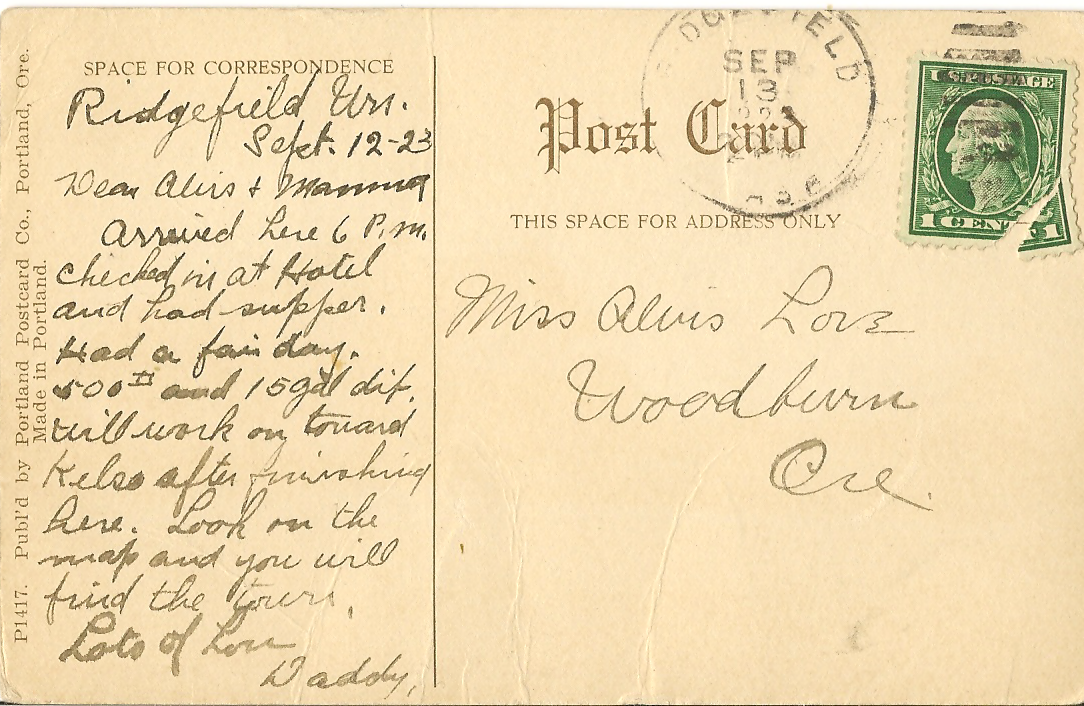 SPACE FOR CORRESPONDENCE
Ridgefield Wn.
Sept. 12-23
Dear Alvis & Mamma
Arrived here 6 P.M.
checked in at Hotel
and had supper.
Had a fair day.
500# and 15 gal dip.
will work on toward
Kelso after finishing
here. Look on the
map and you will
find the town.
Lots of Love
Daddy.
P1417. Publ'd by Portland Postcard Co., Portland, Ore.
Made in Portland.
Post Card
THIS SPACE FOR ADDRESS ONLY
Miss Alvis Love
Woodburn
Ore.
SEP
13
U.S. POSTAGE
1 CENT 1